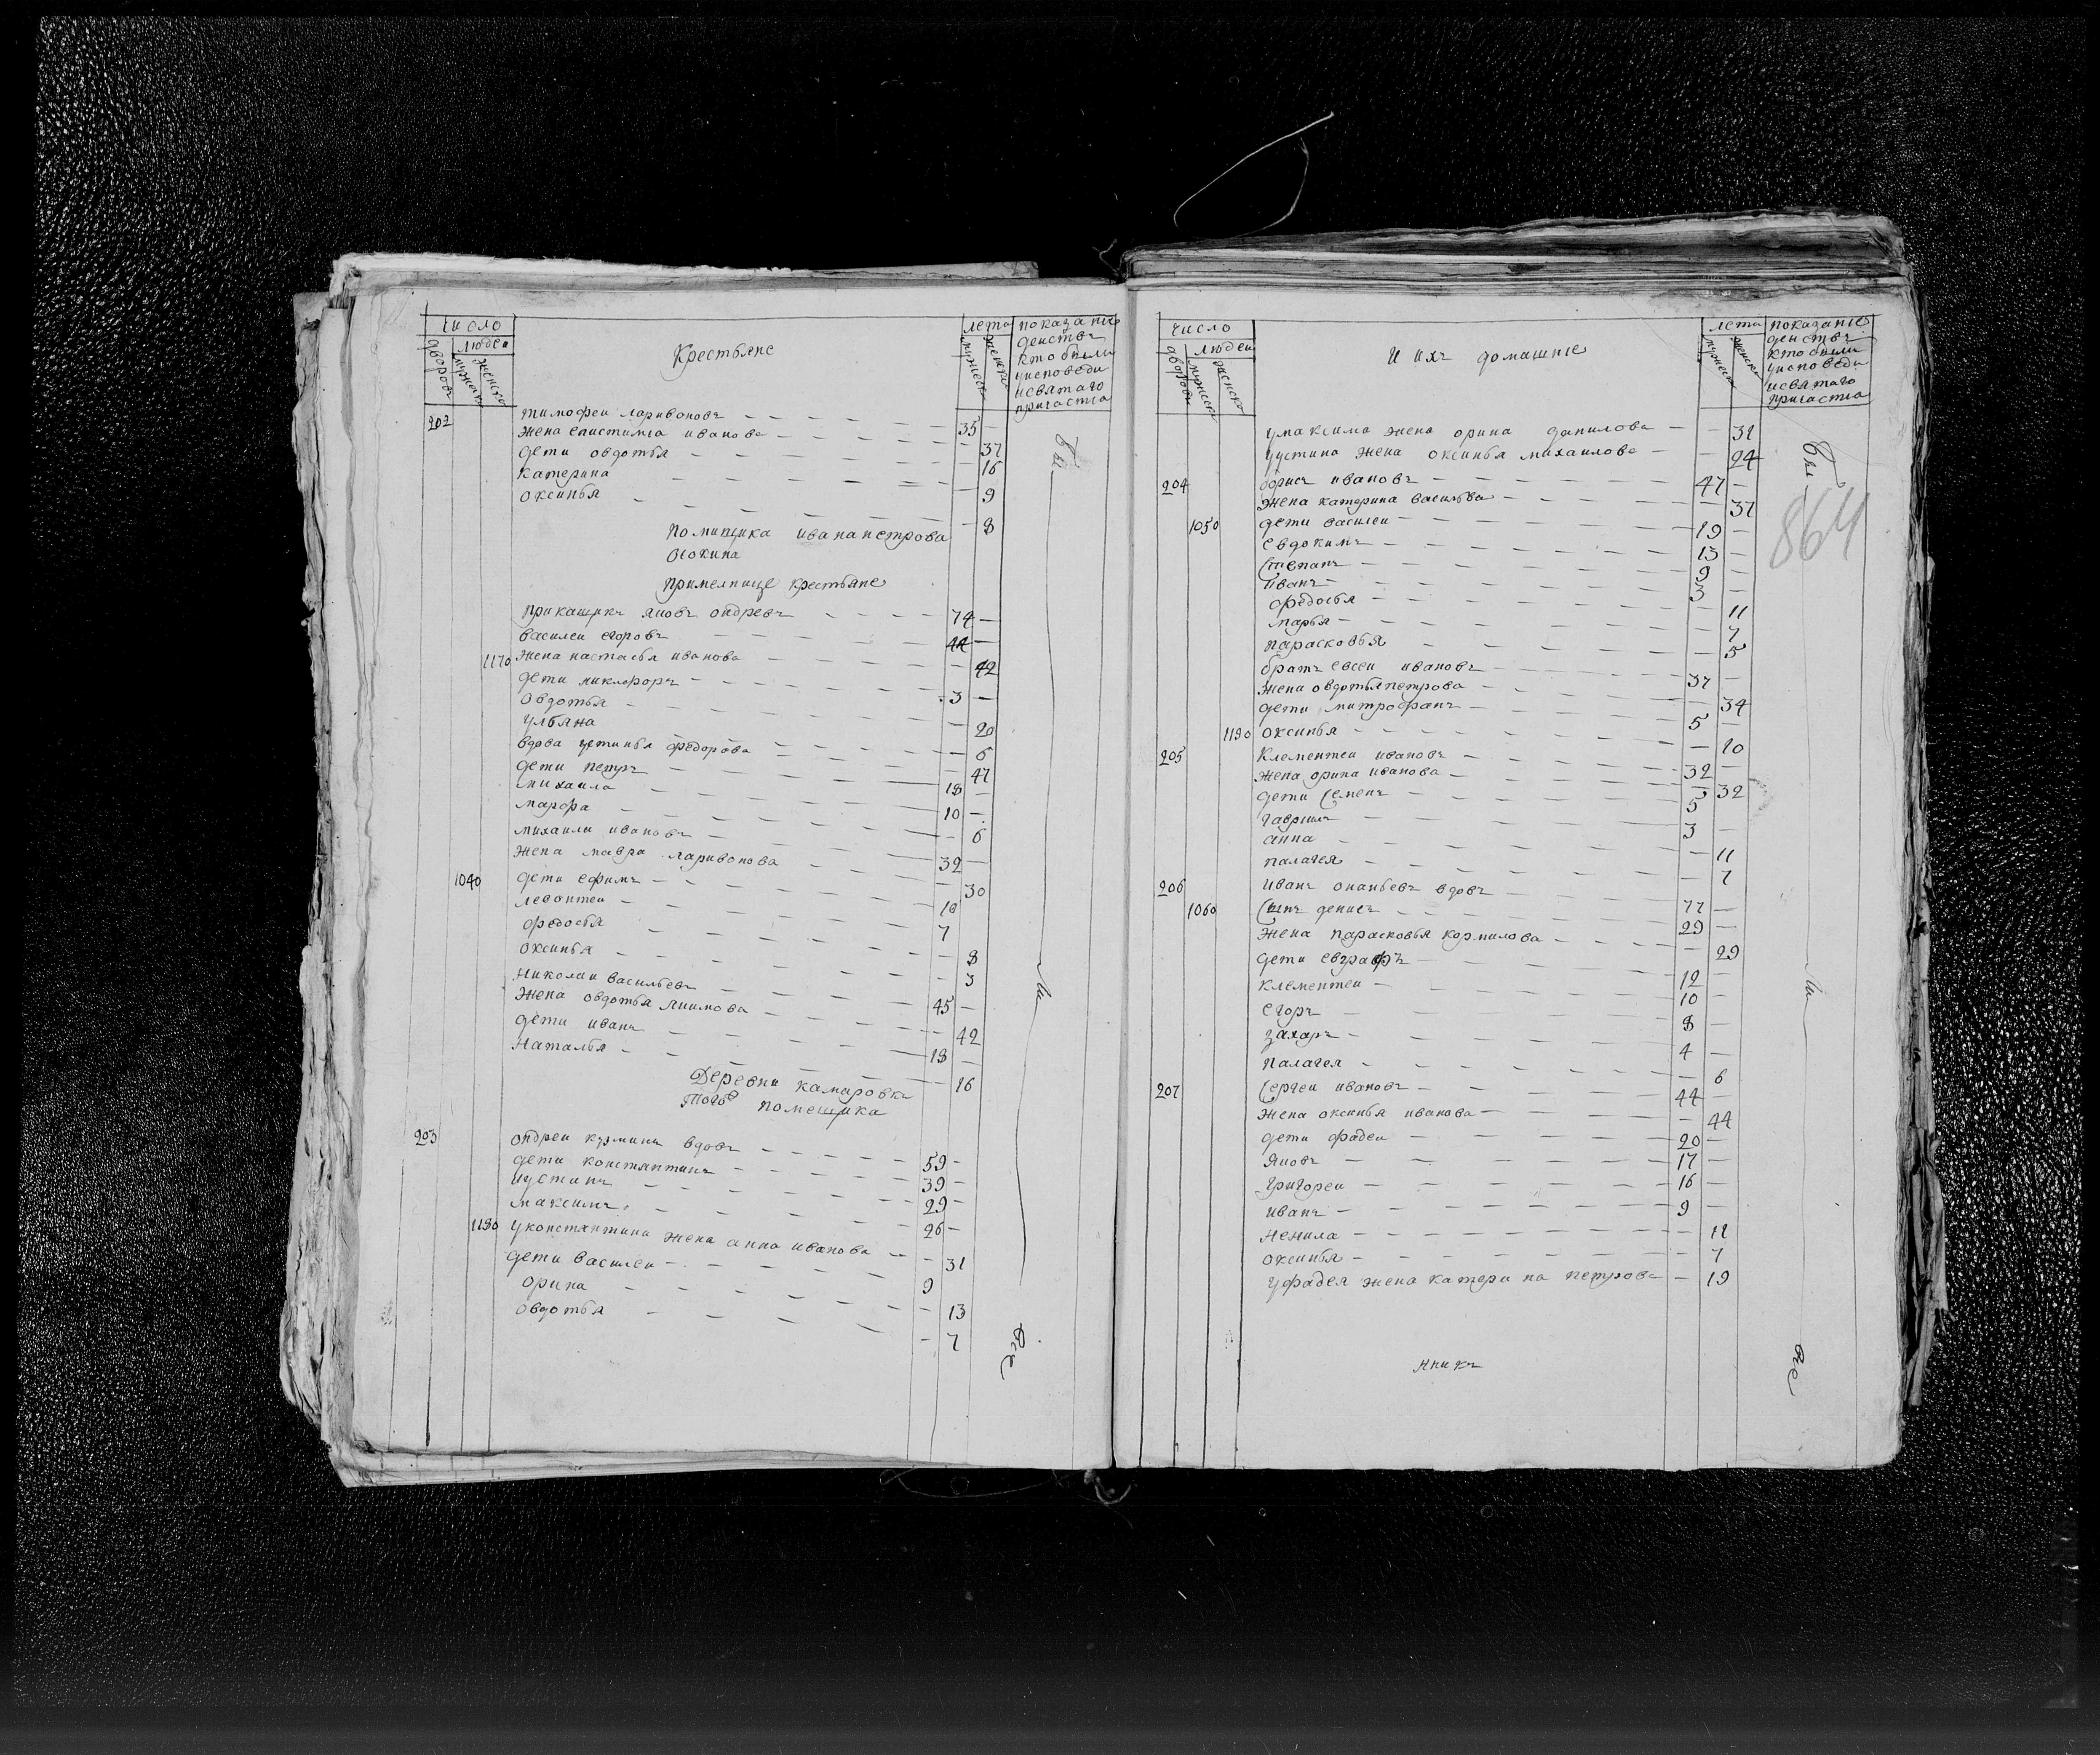 число
людеи
дворовъ
мужеска
женска
Крестьяне
лета
мужеска
женска
показание
деиствъ
кто были
уисповеди
исвятаго
причастиа
202 тимофеи ларивоновъ 35
жена епистимиа иванова 37
дети овдотья 16
катерина 9
оксинья 8
помищика ивана петрова
осокина
примелнице крестьяне
прикащикъ яковъ ондревъ 74
василеи егоровъ 44
1170 жена настасья иванова 42
дети никифоръ 3
овдотья 20
ульяна 6
вдова устинья федорова 47
дети петръ 18
михаила 10
марфа 6
михаила ивановъ 32
жена мавра ларивонова 30
1040 дети ефимъ 10
левонтеи 7
федосья 8
оксинья 3
николаи васильевъ 45
жена овдотья якимова 42
дети иванъ 18
наталья 16
Деревни камаровки
того помещика
203 ондреи кузминъ вдовъ 59
дети констянтинъ 39
иустинъ 29
максимъ 26
1180 уконстянтина жена анна иванова 31
дети василеи 9
орина 13
овдотья 7
бы
ли
все
число
людеи
дворовъ
мужеска
женска
И ихъ домашние
лета
мужеска
женска
показание
деиствъ
кто были
уисповеди
исвятаго
причастиа
умаксима жена орина данилова 31
уустина жена оксинья михаилова 24
204 борисъ ивановъ 47
жена катерина васильва 37
1050 дети василеи 19
евдокимъ 13
степанъ 9
иванъ 3
федосья 11
марья 7
парасковья 5
братъ евсеи ивановъ 37
жена овдотья петрова 34
дети митрофанъ 5
1190 оксинья 10
205 Клементеи ивановъ 32
жена орина иванова 32
дети семенъ 5
гаврилъ 3
анна 11
палагея 7
206 иванъ онаньевъ вдовъ 77
1060 сынъ денисъ 29
жена парасковья корнилова 29
дети евграфъ 12
клементеи 10
егоръ 8
захаръ 4
палагея 6
207 сергеи ивановъ 44
жена оксинья иванова 44
дети фадеи 20
яковъ 17
григореи 16
иванъ 9
ненила 11
оксинья 7
уфадея жена катерина петрова 19
были
864
ли
все